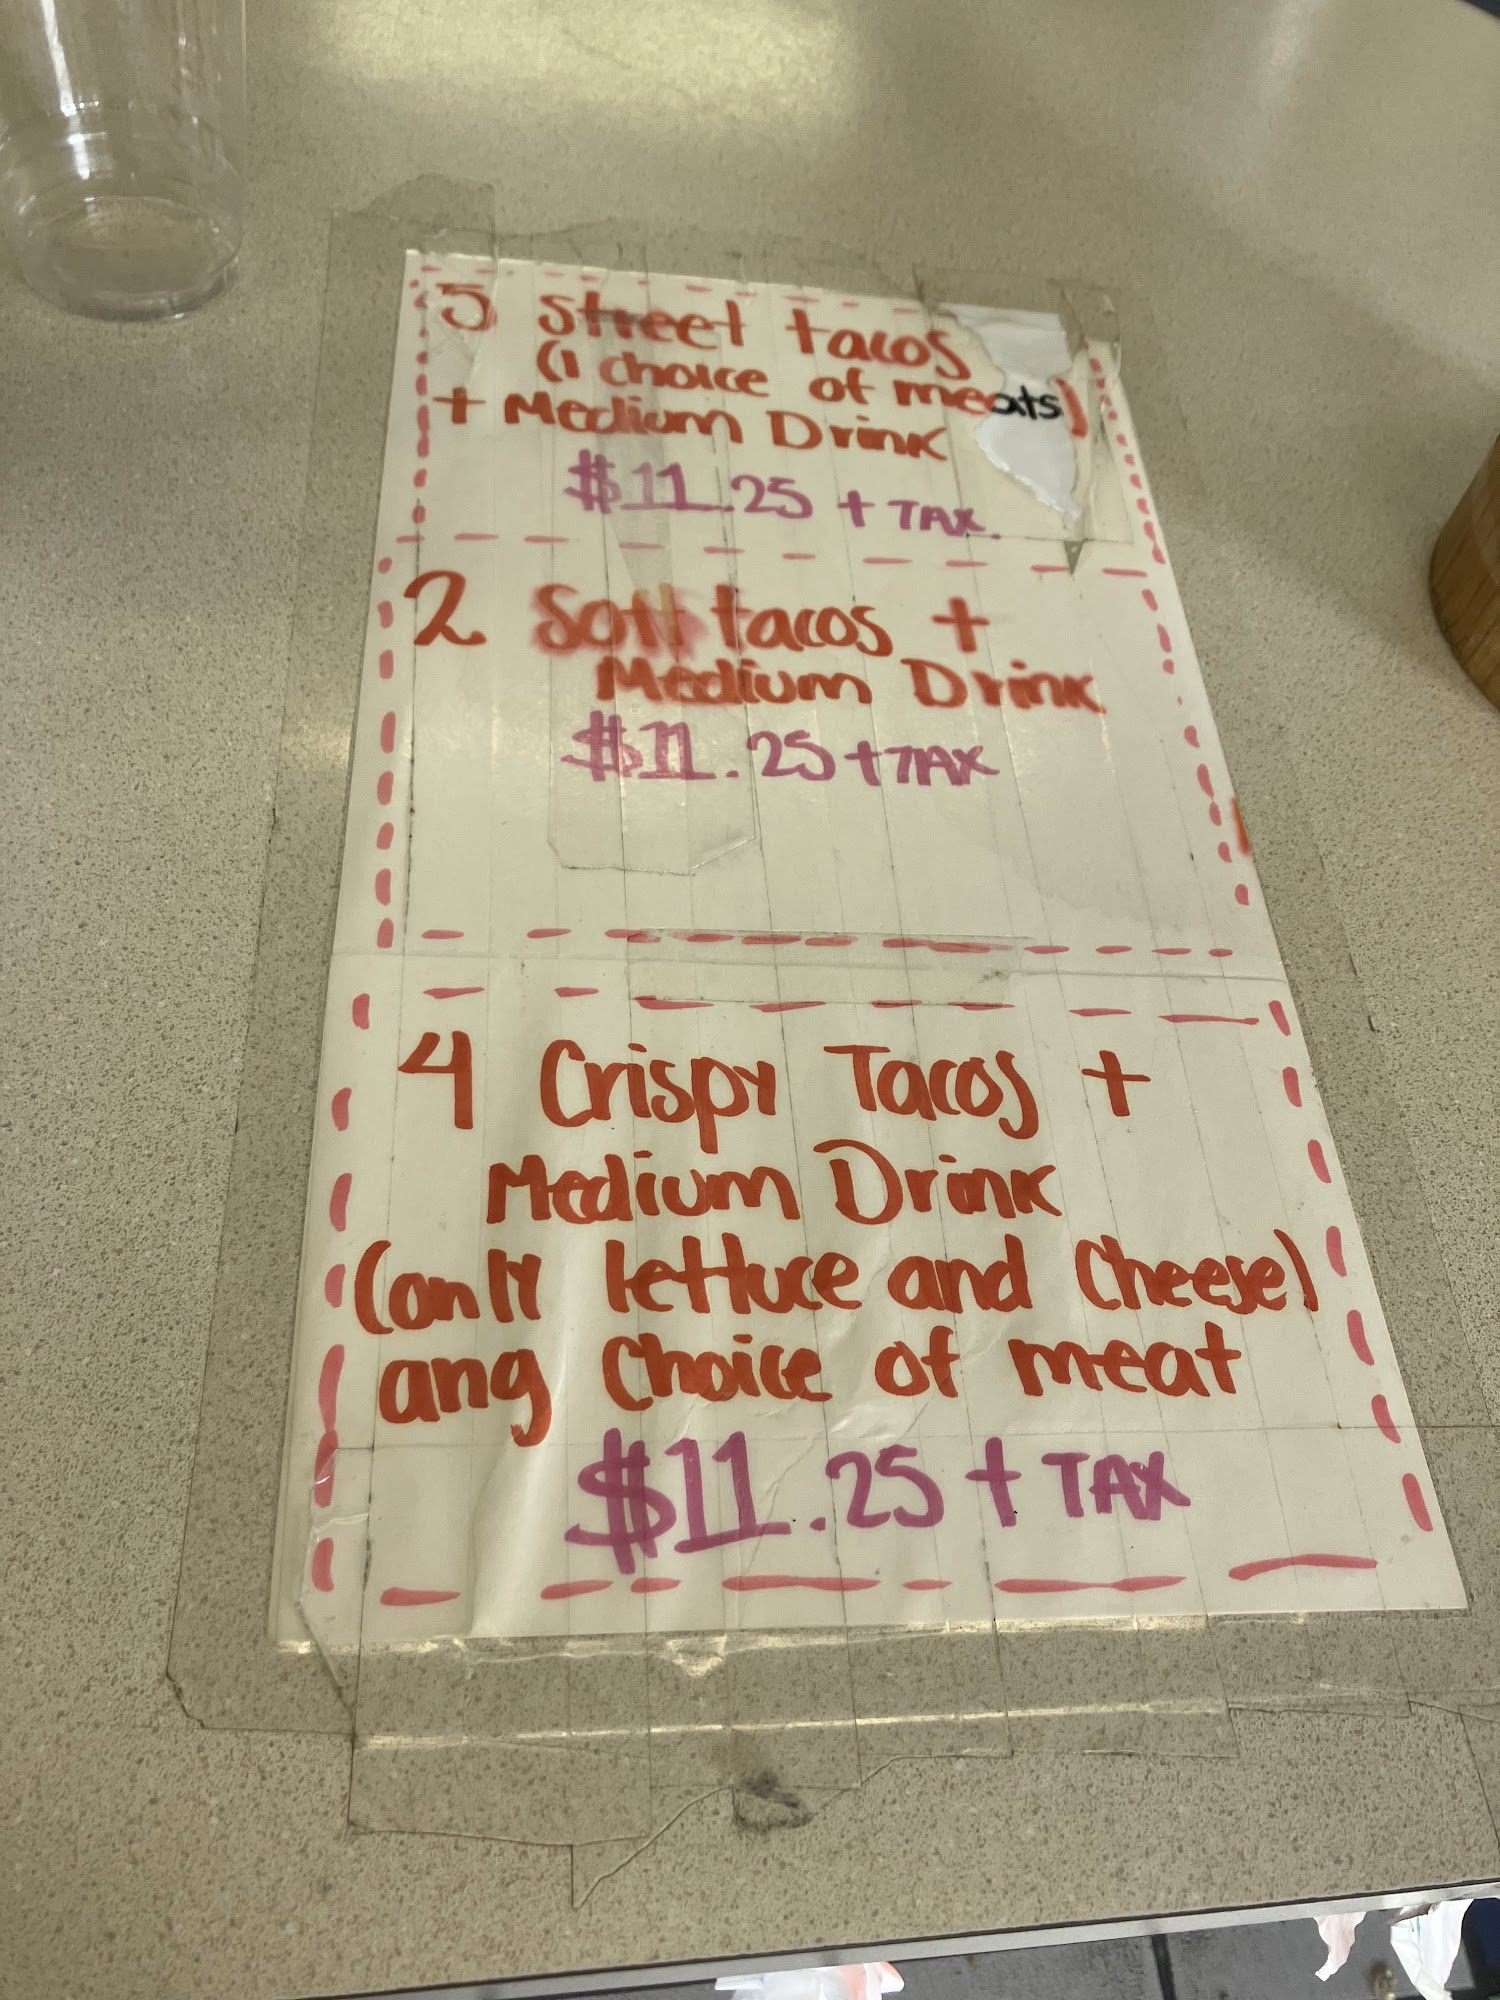 5 Street tacos
(1 choice of meats)
+ Medium Drink
$11.25 + TAX.
2 Soft tacos +
Medium Drink
$11.25 + TAX
4 Crispy Tacos +
Medium Drink
(only lettuce and Cheese)
any Choice of meat
$11.25 + TAX